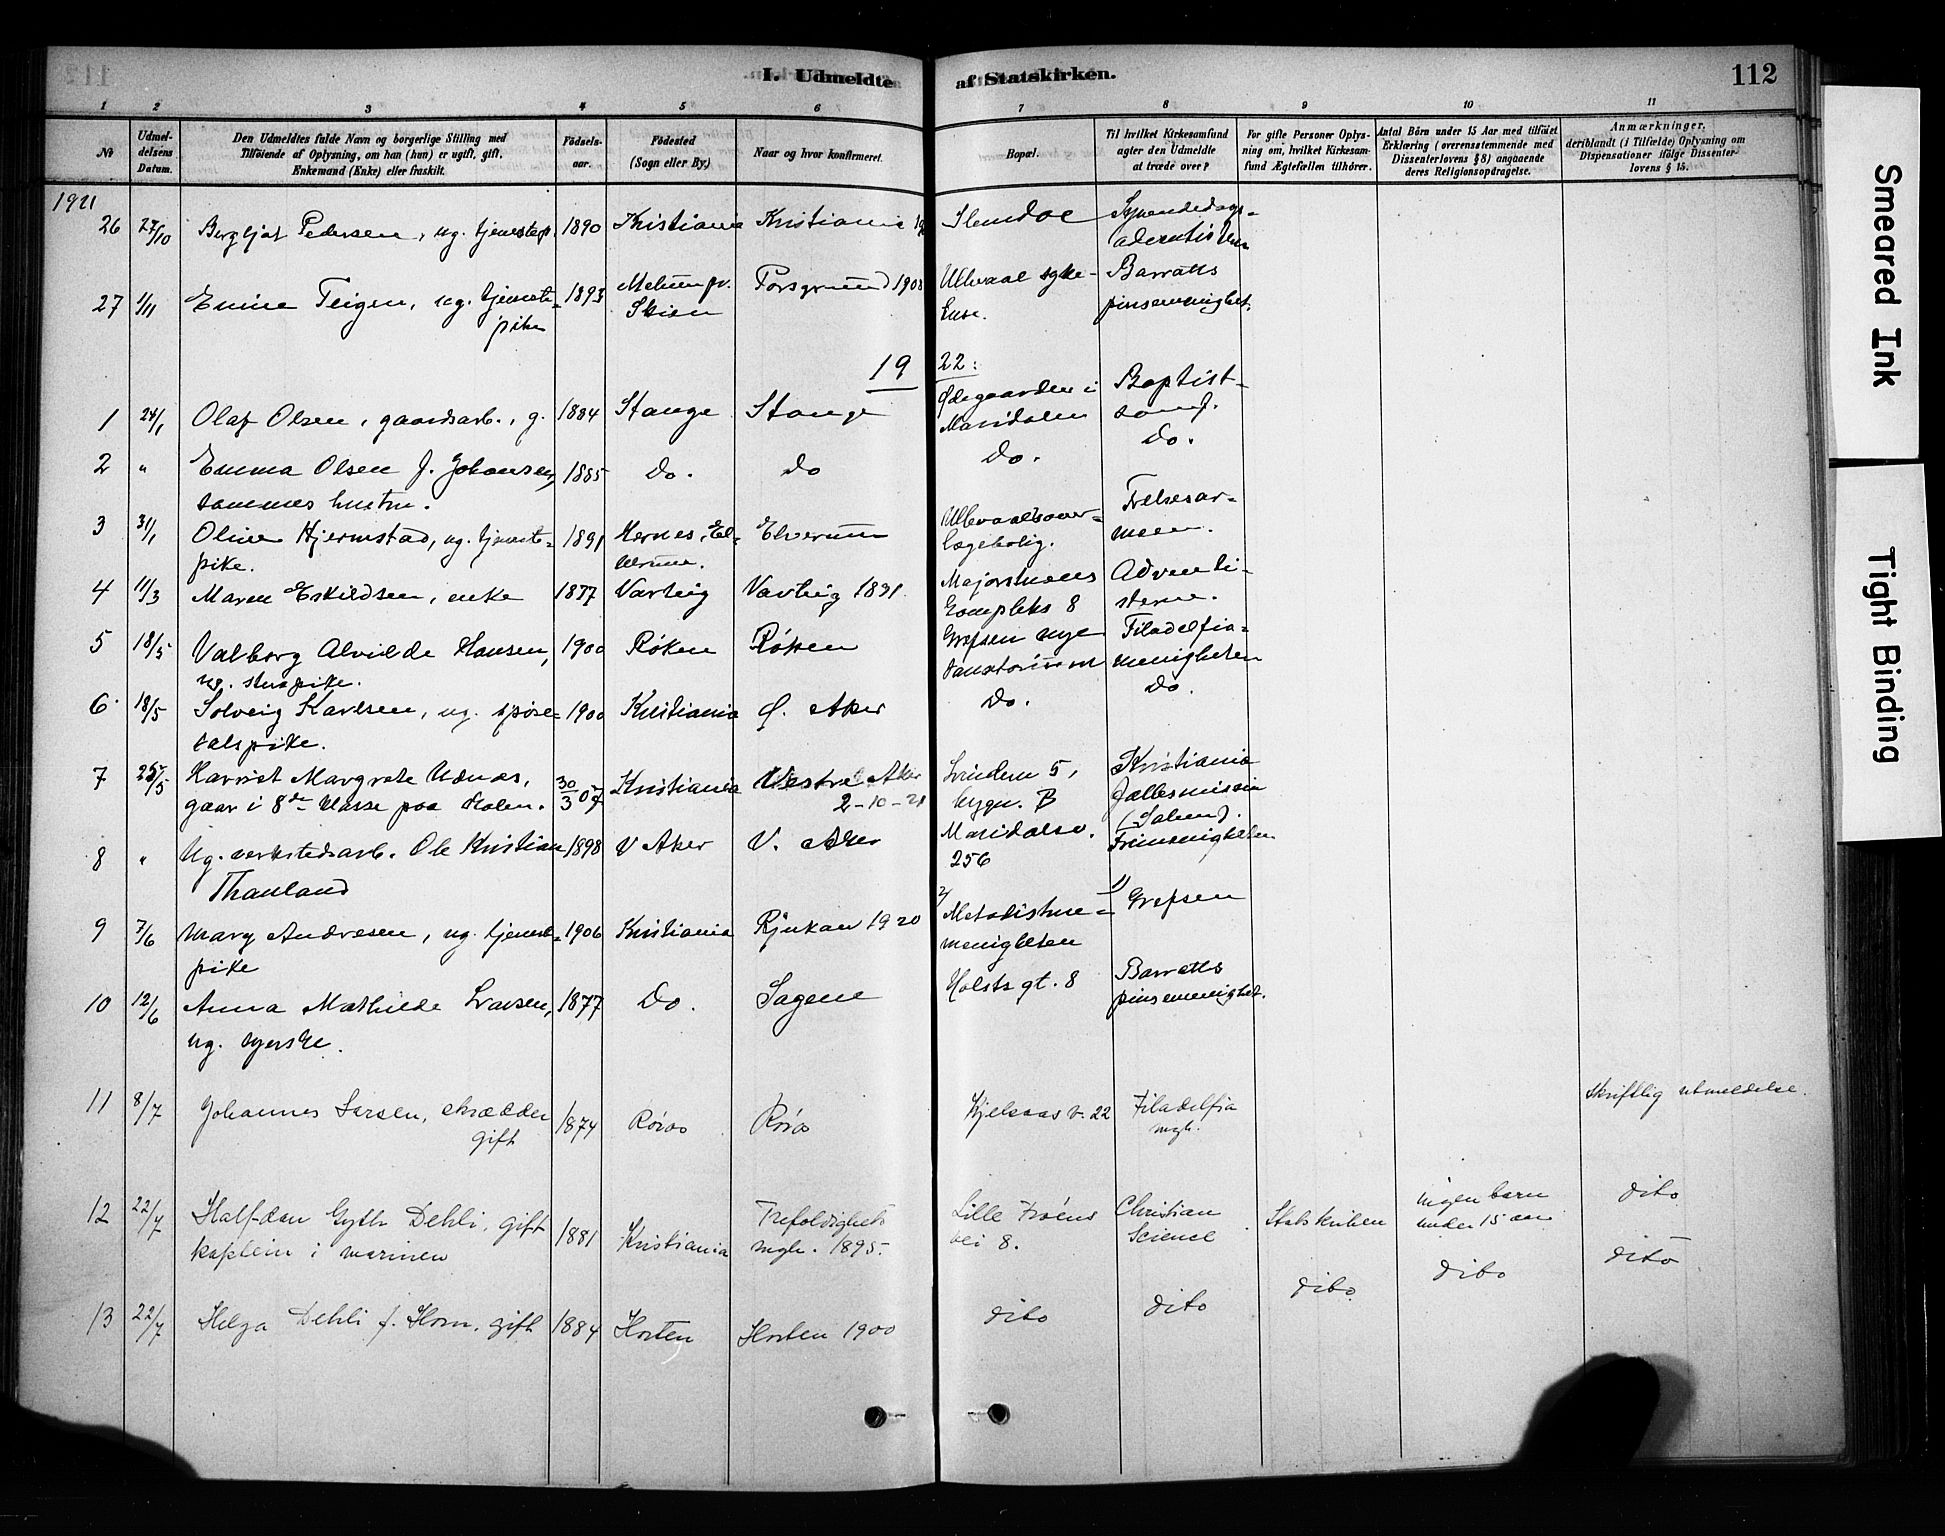 I. Udmeldte af Statskirken.
112
1 2 3 4 5 6 7 8 9 10 11
No
Udmeldelsens Datum.
Den Udmeldtes fulde Navn og borgerlige Stilling med
Tilføiende af Oplysning, om han (hun) er ugift, gift,
Enkemand (Enke) eller fraskilt.
Fødselsaar.
Fødested
(Sogn eller By.)
Naar og hvor konfirmeret.
Bopæl.
Til hvilket Kirkesamfund
agter den Udmeldte
at træde over?
For gifte Personer Oplys-
ning om, hvilket Kirkesam-
fund Ægtefællen tilhører.
Antal Børn under 15 Aar med tilføiet
Erklæring (overensstemmende med
Dissenterlovens § 8) angaaende
deres Religionsopdragelse.
Anmærkninger,
deriblandt (i Tilfælde) Oplysning om
Dispensationer ifølge Dissenter-
lovens § 15.
1921
26 27/10 Bergljot Pedersen, ug. tjenestep. 1890 Kristiania Kristiania Slemdal Syvendedags-
adventisterne
27 1/11 Emine Teigen, ug. tjeneste- 1893 Melum pr. Porsgrund 1908 Ullevaal syke- Barratts
pike Skien huse. pinsemenighet.
1922:
1 24/1 Olaf Olsen, gaardsarb., g. 1884 Stange Stange Ødegaarden i Baptist-
Maridalen samf.
2 " Emma Olsen f. Johansen, 1885 Do. do Do. Do.
sammes hustru.
3 31/1 Oline Hjermstad, ug. tjeneste- 1891 Hernes, El- Elverum Ullevaal over- Frelsesar-
pike. verum. lægebolig. meen.
4 11/3 Maren Eskildsen, enke 1877 Varteig Varteig 1891. Majorstuens Adventi-
Kompleks 8 sterne.
5 18/5 Valborg Alvilde Hansen, 1900 Røken Røken Grefsen nye Filadelfia-
ug. stuepike. sanatorium menigheten
6 18/5 Solveig Karlsen, ug. 1900 Kristiania Ø. Aker Do. Do.
pike.
7 25/5 Harriet Margrete Udnæs, 30/3 07 Kristiania Vestre Aker Lindern 5, Kristiania
gaar i 8de klasse paa skolen. 2-10-21 bygn. B Fællesmission
(Salem).
8 " Ug. verkstedsarb. Ole Kristian 1898 V Aker V. Aker Maridalsv. Frimenigheten
Thauland 256
9 7/6 Mary Andresen, ug. tjeneste- 1906 Kristiania Rjukan 1920 2) Metodistme- 1) Grefsen
pike menigheten
10 12/6 Anna Mathilde Larsen, 1877 Do. Sagene Holsts gt. 8 Barratts
ug. syerske. pinsemenighet.
11 8/7 Johannes Larsen, skrædder 1874 Røros Røros Kjelsaas v. 22 Filadelfia Skriftlig utmeldelse.
gift mgh.
12 22/7 Halfdan Gyth Dehli, gift 1881 Kristiania Trefoldighets Lille Frøens Christian Statskirken ingen barn dito
kaptein i marinen mgh. 1895. vei 8. Science under 15 aar
13 22/7 Helga Dehli f. Horn, gift 1884 Horten Horten 1900 dito dito dito dito dito
Smeared Ink
Tight Binding